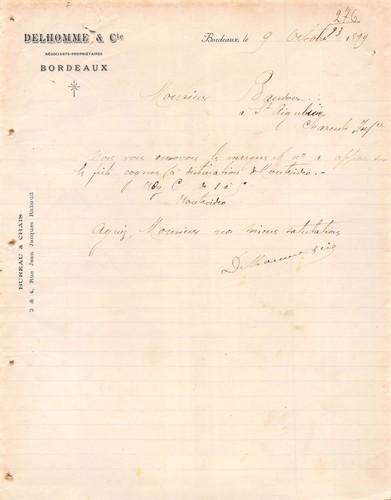 276
13
DELHOMME & Cie
NÉGOCIANTS-PROPRIÉTAIRES
BORDEAUX
Bordeaux, le 9 Octobre 1899
Monsieur
à St Aigulin
Charente Infre
Nous vous envoyons la marque et no à apposer sur
le fût cognac à destination de Montevideo.
C de 1 à
Montevideo
Agréez, Monsieur nos sincères salutations
Delhomme & Cie
BUREAU & CHAIS
2 & 4, Rue Jean Jacques Rabaud